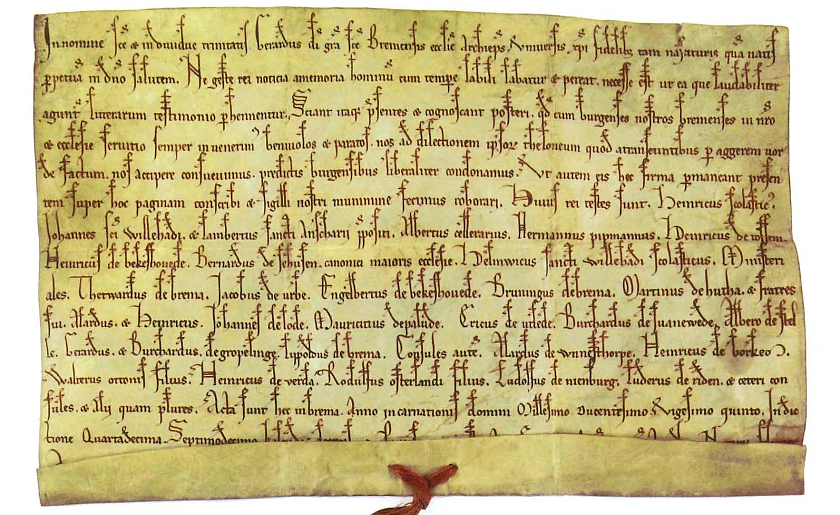 In nomine sce & individue trinitatis. Gerardus di gra sce Bremensis ecclie archieps. Universis xpi fidelibz tam nascituris qua natis
ppetua in dno salutem. Ne geste rei noticia a memoria hominu cum tempe labili labatur & pereat. necesse est ut ea que laudabiliter
agunt litterarum testimonio phennentur. Sciant itaq psentes & cognoscant posteri. qd cum burgenses nostros bremenses in nro
& ecclesie servitio semper invenerim benivolos & paratos. nos ad dilectionem ipsoz theloneum quod a transeuntibus p aggerem
de factum. nos accipere consuevimus. predictis burgensibus liberaliter condonamus. Ut autem eis hec firma pmaneant presen
tem super hoc paginam conscribi & sigilli nostri munimine fecimus roborari. Huius rei testes sunt. Heinricus scolastic
Johannes sci Willehadi. & Lambertus sancti Anscharii ppositi. Albertus cellerarius. Hermannus pipmannus. Heinricus de tossem.
Heinricus de bekeshovede. Bernardus de sehusen. canonici maioris ecclesie. Helmwicus sancti willehadi scolasticus. Ministeri
ales. Therwardus de brema. Jacobus de urbe. Engelbertus de bekeshovede. Bruningus de brema. Martinus de hutha. & fratres
sui. Alardus. & Heinricus. Johannes de lode. Mauricius de palude. Ericus de utlede. Burchardus de stianewede. Albero de stel
le. Gerardus. & Burchardus. de gropelinge. Lippoldus de brema. Consules aute. Alardus de winnesthorpe. Heinricus de borken.
Walterus ottonis filius. Heinricus de verda. Rodulfus osterlandi filius. Ludolfus de nienburg. Luderus de riden. & ceteri con
sules. & Alii quam plures. Acta sunt hec in brema. Anno incarnationis domini Millesimo Ducentesimo Vigesimo quinto. Indic
tione Quartadecima. Septimodecimo